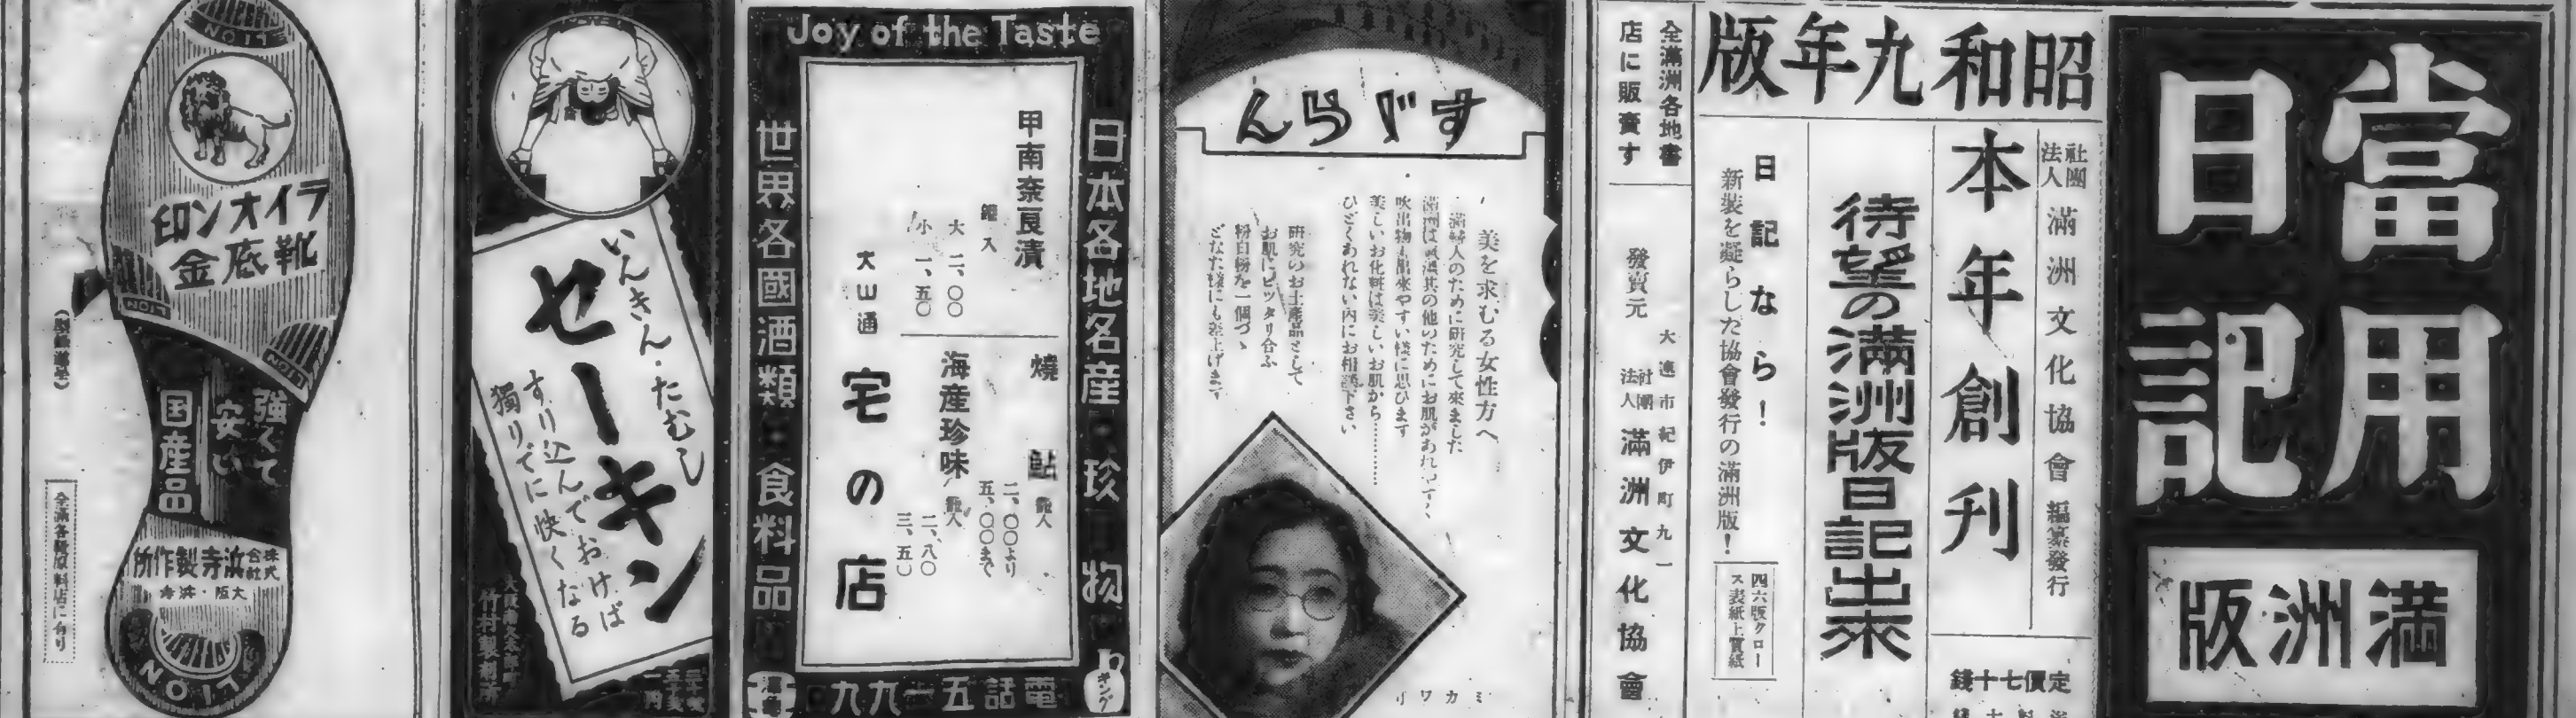 當用
日記
満洲版
昭和九年版
社團法人 滿洲文化協會 編纂發行
本年創刊
定價七十錢
待望の満洲版日記出来
日記なら！
新裝を凝らした協會發行の滿洲版！
四六版クロース表紙上質紙
全滿洲各地書店に販賣す
發賣元
大連市紀伊町九一
社團法人 滿洲文化協會
すゞらん
美を求むる女性方へ
滿婦人のために研究して來ました
吹出物も出來やすい樣に思ひます
美しいお化粧は美しいお肌から………
ひどくあれない内にお相談下さい
研究のお土産品として
お肌にピッタリ合ふ
粉白粉を一個づゝ
どなた樣にも差上げます
ミカワ
Joy of the Taste
日本各地名産
珍
物
世界各國酒類
食料品
甲南奈良漬
罐入
大 二、〇〇
小 一、五〇
燒鮎
罐入
二、〇〇より
五、〇〇まで
海産珍味
罐入
二、八〇
三、五〇
大山通
宅の店
電話五一九九
キング
いんきん・たむし
セーキン
すり込んでおけば
獨りでに快くなる
竹村製劑所
LION
ライオン印
靴底金
LION
LION
強くて
安い
国産品
株式會社浜寺製作所
大阪・浜寺
LION
全滿各靴原料店に有り